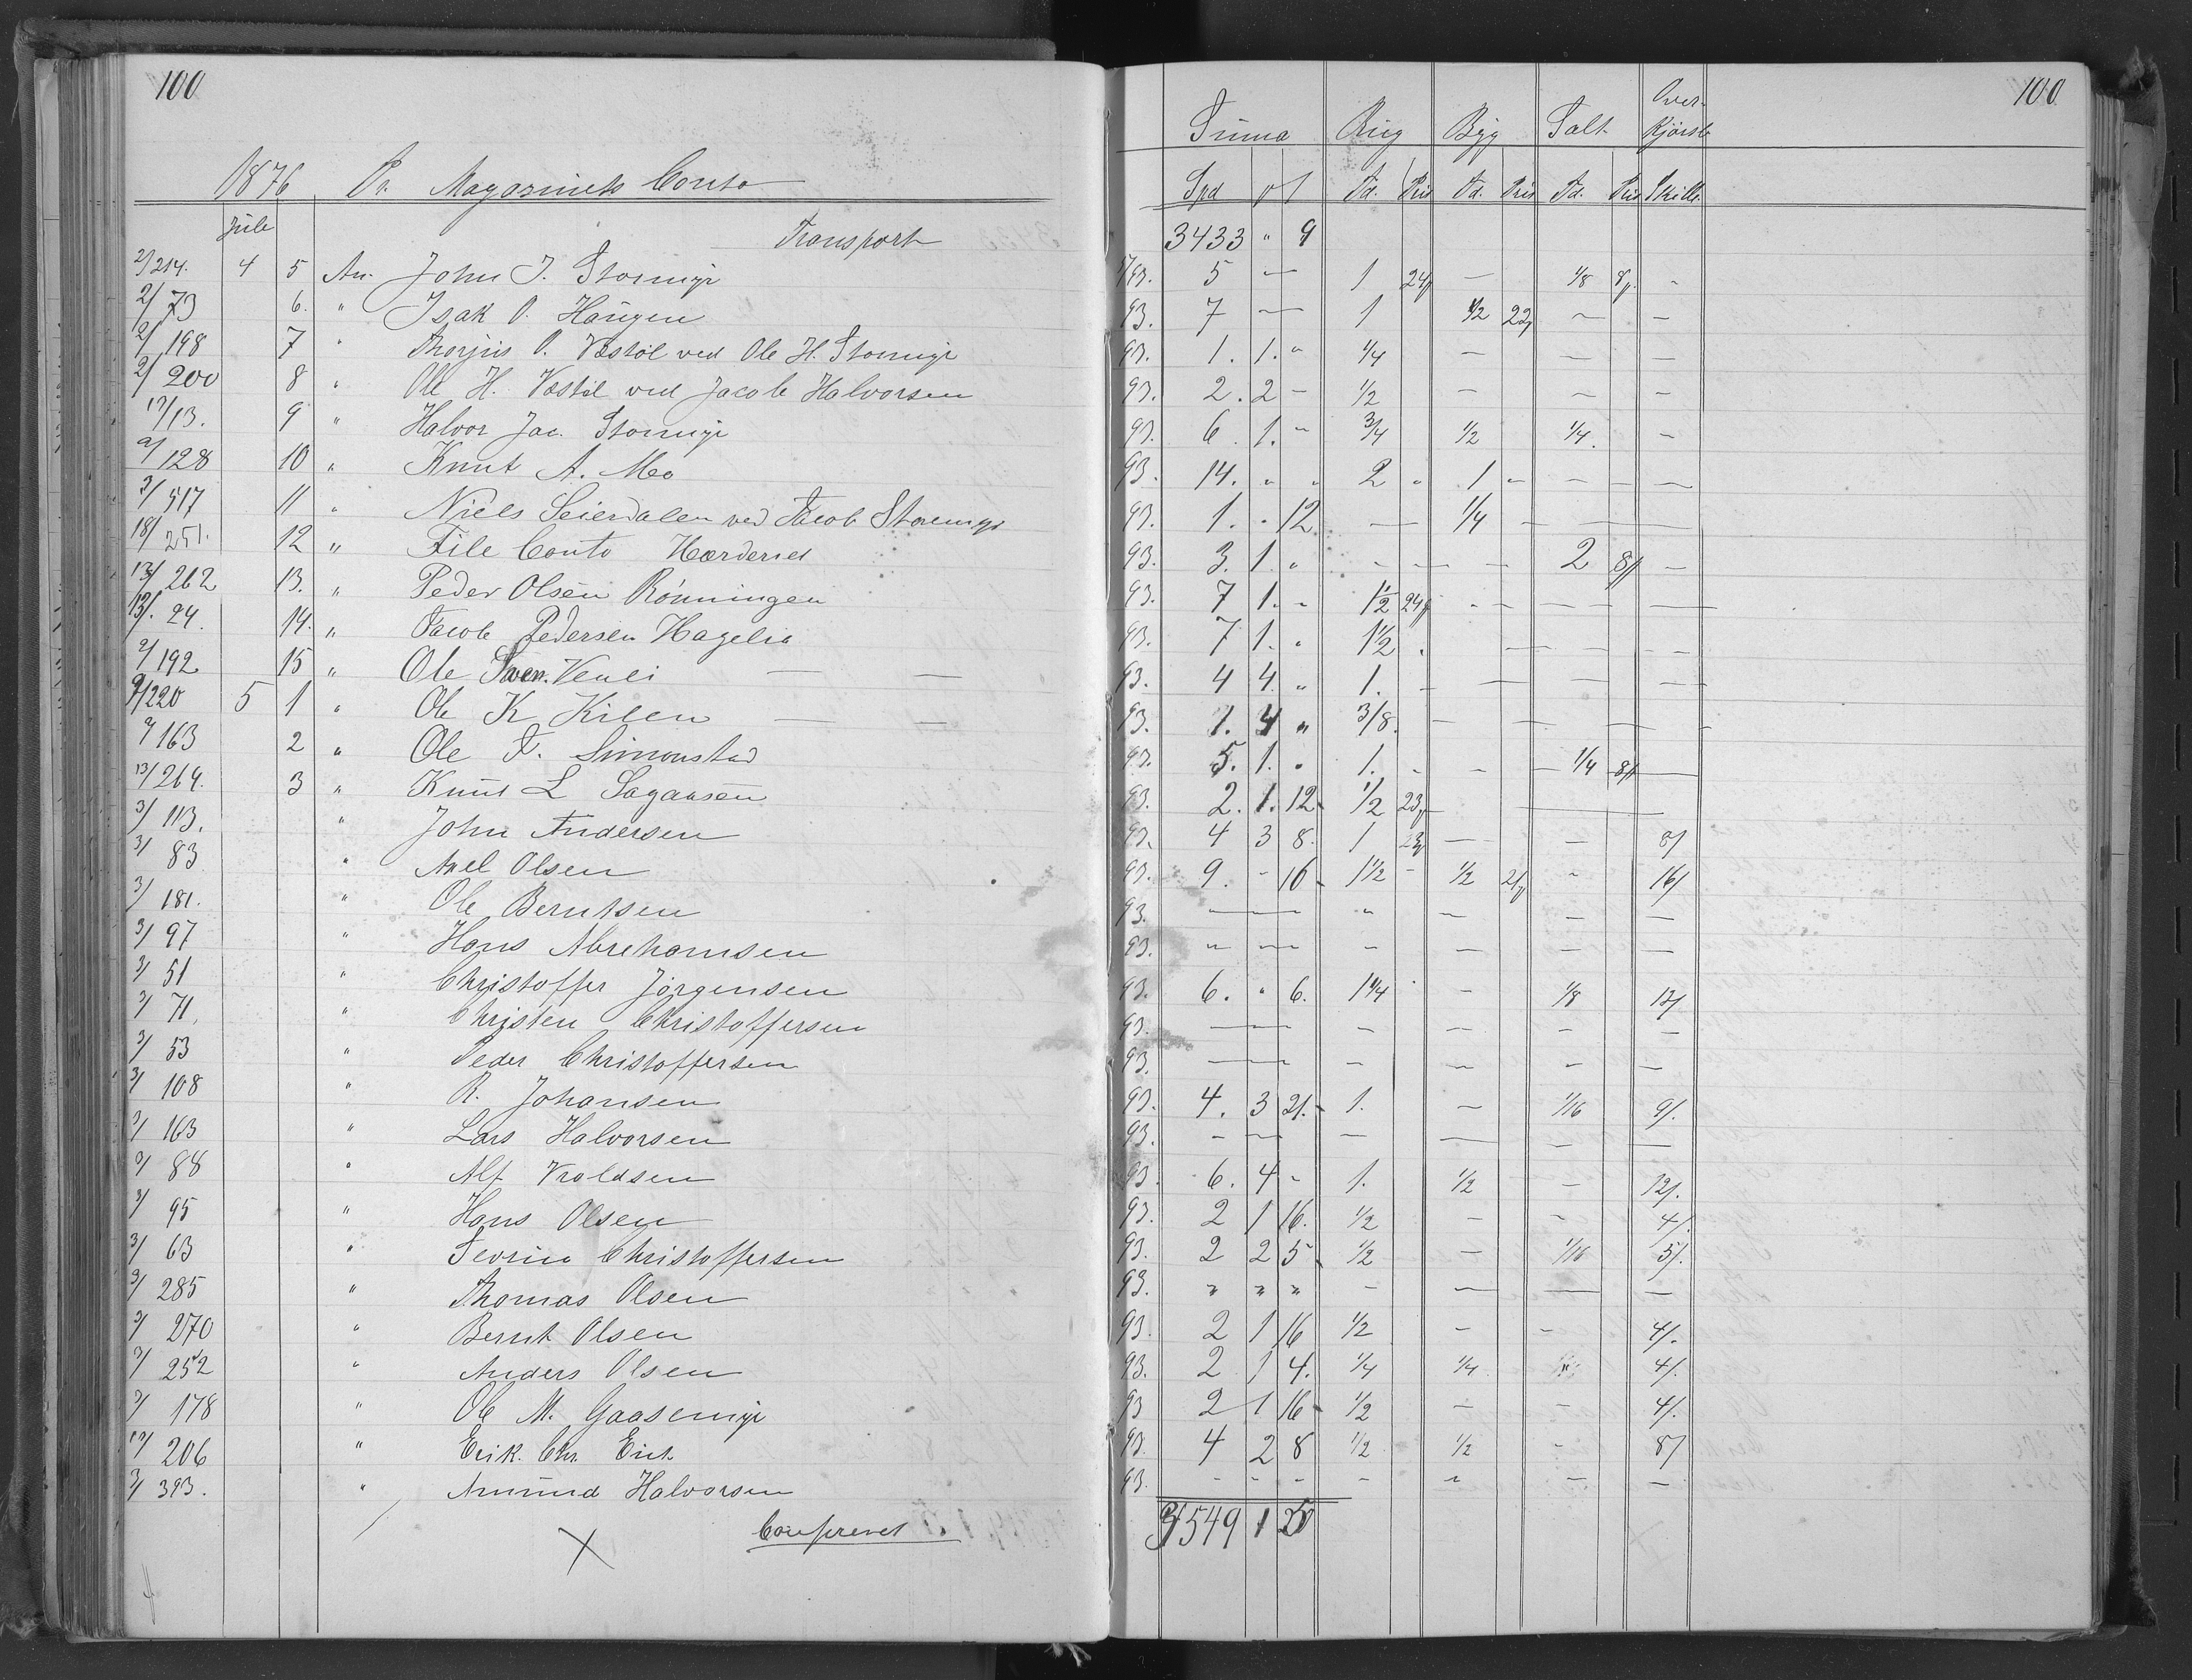 100
1876 Pr. Magazinets Conto
Juli
Transport
2/214. 4 5 An. John J. Stormyr
2/73 6. " Isak O. Haugen
2/198 7 " Thorjus O. Vestøl ved Ole H. Stormyr
2/200 8 " Ole H. Vestøl ved Jacob Halvorsen
17/13. 9 " Halvor Jac. Stormyr
2/128 10 " Knut A. Mo
3/517 11 " Niels Seierdalen ved Jacob Storemyr
18/251. 12 " File Conto Herderud
13/262 13. " Peder Olsen Rönningen
13/. 24. 14. " Jacob Pedersen Hagelia
2/192 15 " Ole Sven. Venei
2/220 5 1 " Ole K Kilen
2/163 2 " Ole T. Simonstad
13/264. 3 " Knut L Sagansen
3/113. " John Andersen
3/83 " Axel Olsen
3/181. " Ole Berntsen
3/97 " Hans Abrehamsen
3/51 " Christoffer Jörgensen
3/71, " Christen Christoffersen
3/53 " Peder Christoffersen
3/108 " R. Johansen
3/163 " Lars Halvorsen
3/88 " Alf Vroldsen
3/95 " Hans Olsen
3/63 " Sevrin Christoffersen
3/285 " Thomas Olsen
3/270 " Bernt Olsen
3/252 " Anders Olsen
3/178 " Ole M. Gaasemyr
17/206 " Erik. Chr. Erik
3/393. " Amund Halvorsen
Confereret
100
Suma Rug Byg Salt Over-
Kjörsb
Spd Td. Pris Td. Pris Td. Pris Skill.
3433 " 9
93. 5 — 1 24 — 1/8 8 -
93. 7 — 1 1/2 22 — —
93. 1. 1. " 1/4 — — —
93. 2. 2 - 1/2 - — -
93. 6. 1. " 3/4 1/2 1/4. —
93. 14. " " 2 " 1 - — — —
93. 1. " 12 — 1/4 — — —
93. 3. 1. " - — — 2 8 —
93. 7 1. - 1 1/2 24 - — — —
93. 7 1. " 1 1/2 . — — - -
93. 4 4. " 1. — — — —
93. 1. 4 " 3/8. — — — -
93. 5. 1. " 1. - - 1/4 8 —
93. 2. 1. 12 1/2 23 —
93. 4 3 8. 1 23 — — 8/
93. 9. - 16 1 1/2 - 1/2 21 - 16/
93. — " — — —
93. " — - — — —
93. 6. " 6. 1 1/4 - 1/8 12/
93. — — — — —
93. — — — — —
93. 4. 3 21. 1. — 1/16 9/.
93. - — — — — —
93. 6. 4 - 1. 1/2 — 12/.
93. 2 1 16. 1/2 — - 4/.
93. 2 2 5 1/2 — 1/16 5/.
93. " " " - — — —
93. 2 1 16 1/2 - - 4/.
93. 2 1 4. 1/4 1/4 4/.
93 2 1 16 1/2 - - 4/.
93. 4 2 8 1/2 1/2 - 8/
93. - - - - - — —
3549 1